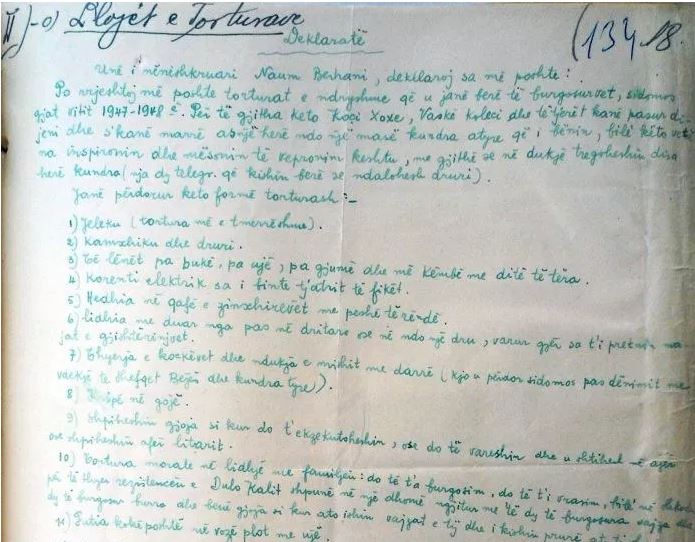 II)-a) Llojet e Torturave
(134 18.
Deklaratë
Unë i nënëshkruari Naum Bezhani, deklaroj sa më poshtë:
Po rrjeshtoj më poshtë torturat e ndryshme që u janë bërë të burgosurvet, sidomos
gjat vitit 1947-1948ës. Për të gjitha keto Koçi Xoxe, Vaskë Koleci dhe të tjerët kanë pasur di-
jeni dhe s'kanë marrë asnjë herë ndo një masë kundra atyre që i bënin, bile këto vetë
na inspironin dhe mësonin të vepronim keshtu, me gjithë se në dukje tregoheshin disa
herë kundra (nja dy telegr. që kishin bërë se ndalohesh druri).
Janë përdorur keto formë torturash:-
1) Jeleku (tortura më e tmerrëshme).
2) Kamxhiku dhe druri.
3) Të lënët pa bukë, pa ujë, pa gjumë dhe më këmbë me ditë të tëra.
4) Korenti elektrik sa i binte tjatrit të fikët.
5) Hedhia në qafë e zinxhirëvet me peshë të rëndë.
6) lidhia me duar nga pas në dritare ose në ndo një dru, varur gjer sa t'i preknin ma-
jat e gishtërinjvet.
7) Thyerja e kockëvet dhe ndukja e mishit me darrë (kjo u përdor sidomos pas dënimit me
vdekje të Shefqet Bejës dhe kundra tyre).
8) Kripë në gojë.
9) Shpiheshin gjoja si kur do t'ekzekutoheshin, ose do të vareshin dhe u shtihesh në ajër
ose shpiheshin afër litarit.
10) Tortura morale në lidhje me familjen: do të t'a burgosim, do të t'i vrasim, bile në
për të thyer rezistencën e Dulo Kalit shpunë në një dhomë ngjitur me të dy të burgosura vajza dhe
dy të burgosur burra dhe bënë gjoja si kur ato ishin vajzat e tij dhe i kishin prurë
11) Futia kokë poshtë në vozë plot me ujë.